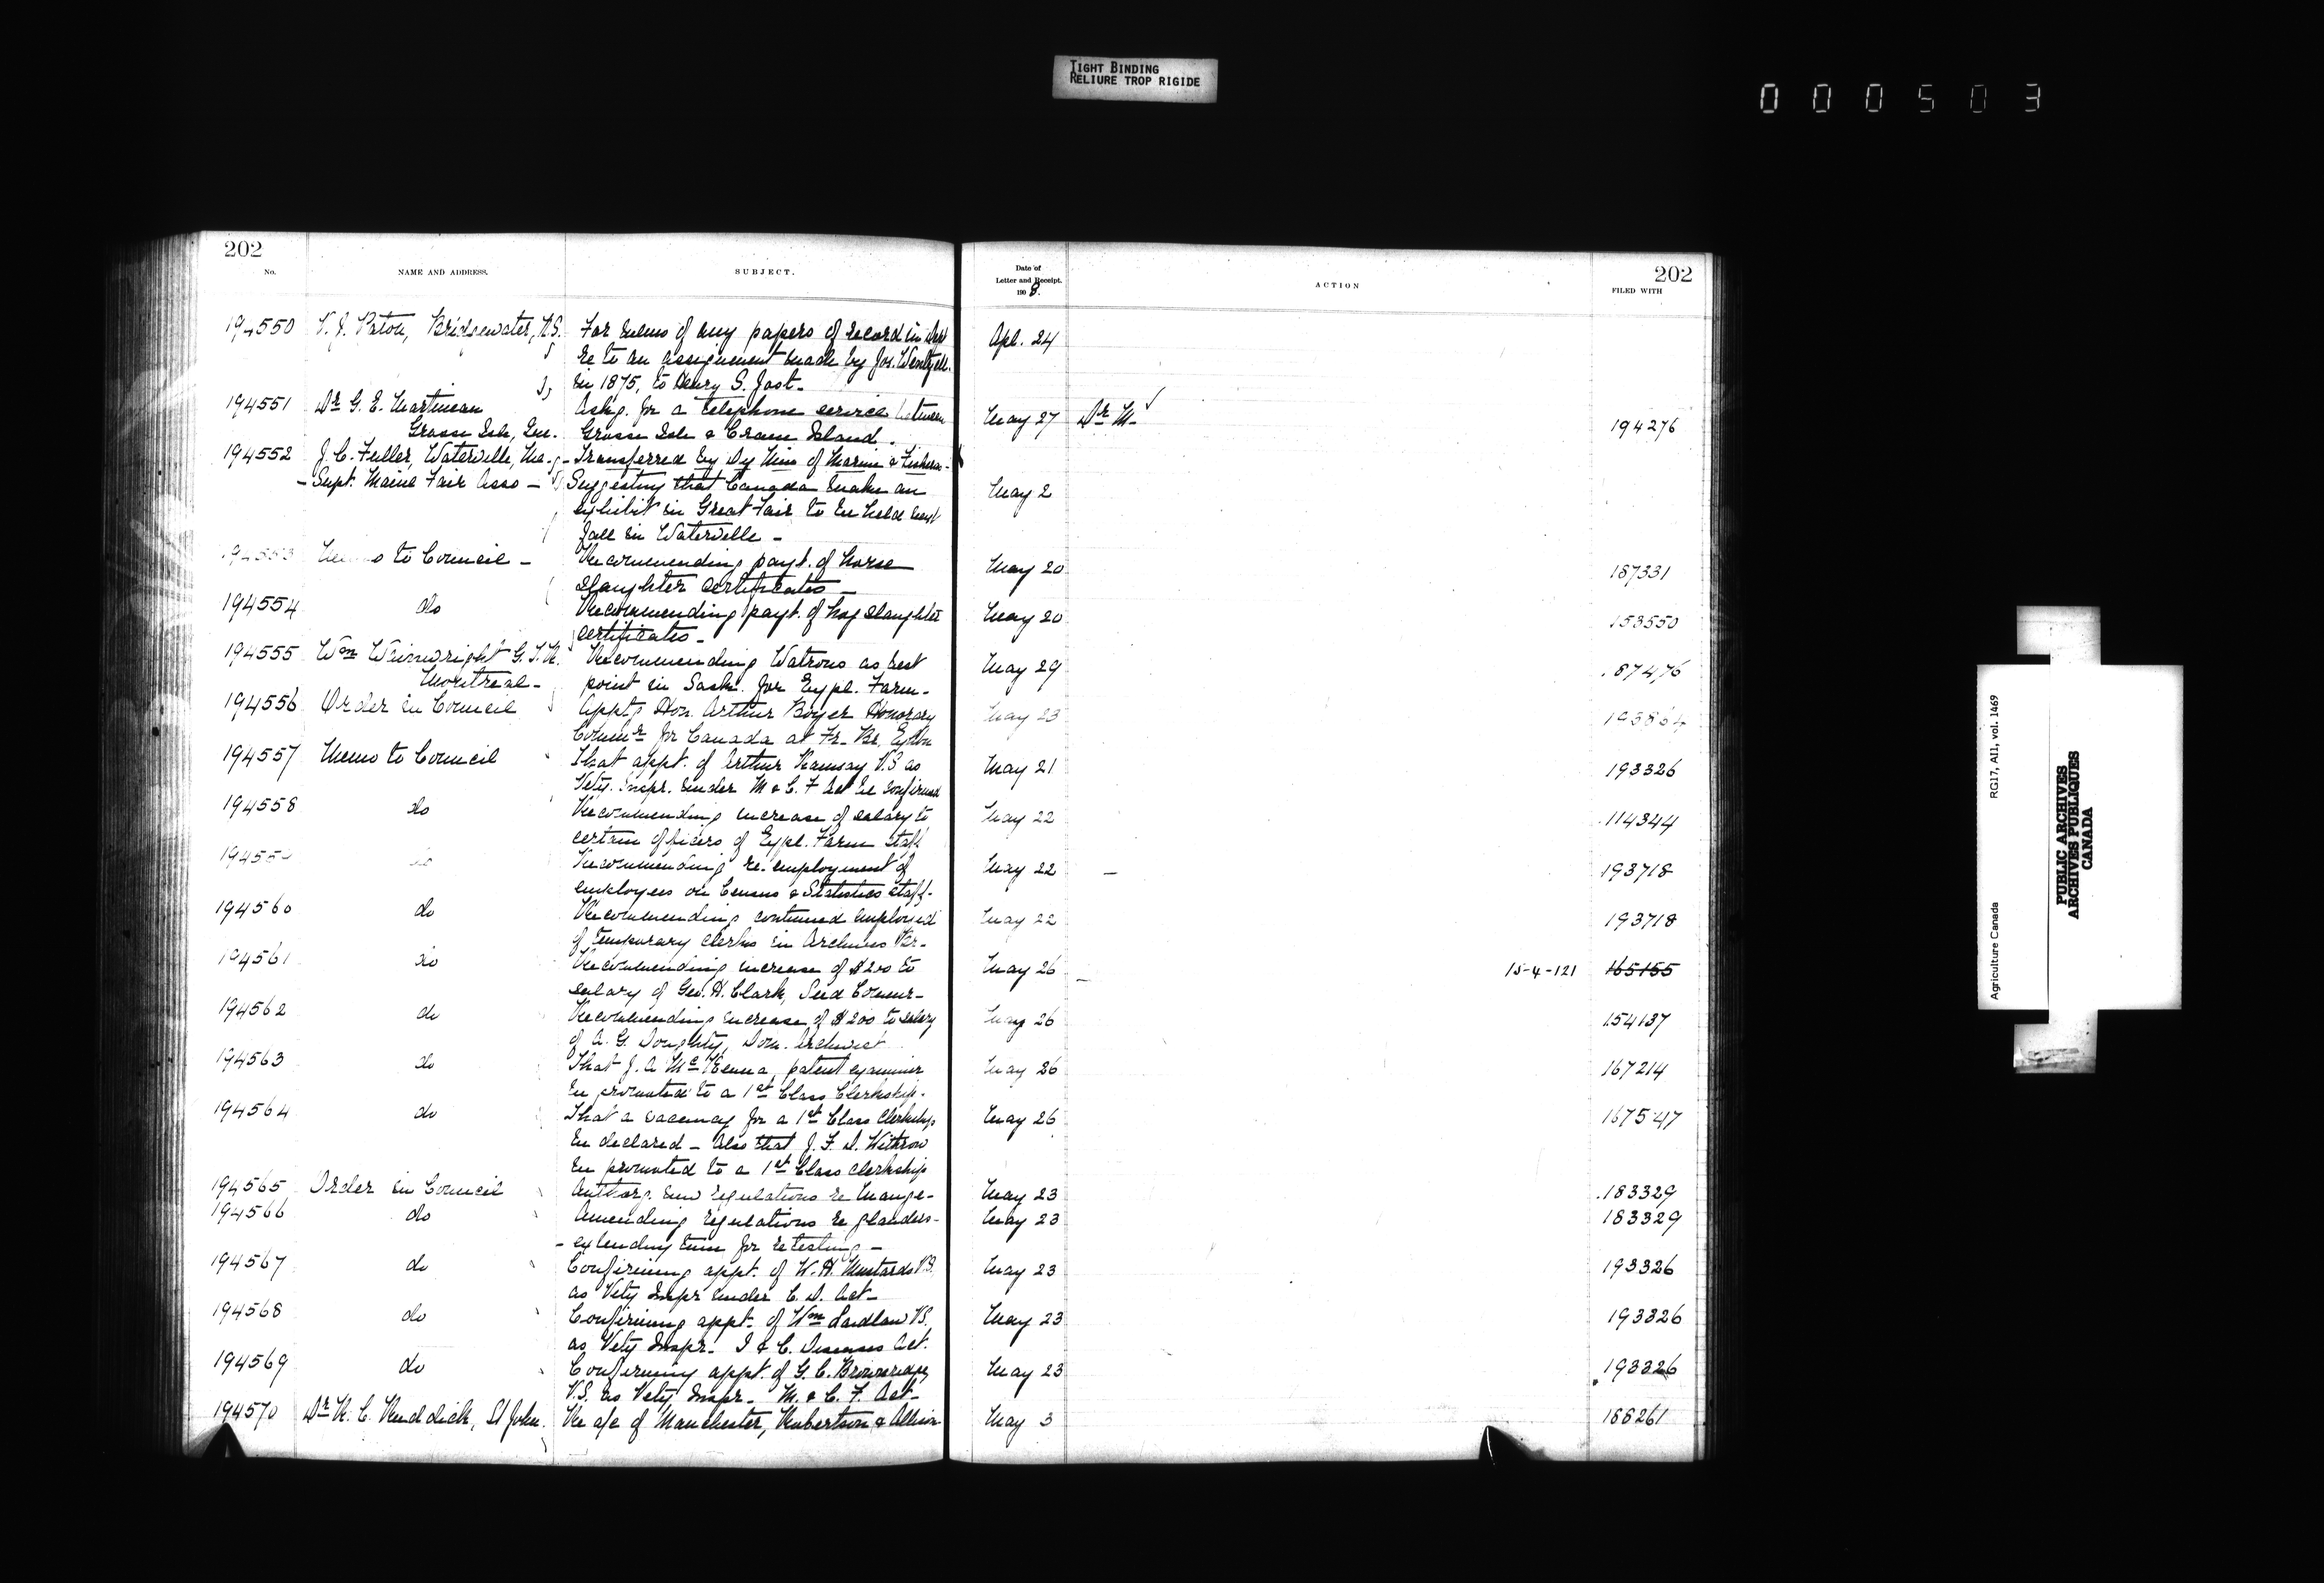 TIGHT BINDING
RELIURE TROP RIGIDE
000503
202
No.
NAME AND ADDRESS.
SUBJECT.
Date of
Letter and Receipt.
1908.
ACTION
202
FILED WITH
194550 V. J. Paton, Bridgewater, N.S. For memo of any papers of record in Apl. 24
re to an assignment made by Jos. Wentzell
in 1875, to Henry S. Jost.
194551 Dr G. E. Martineau Askg. for a telephone service between May 27 Dr M. 194276
Grosse Isle, Que. Grosse Isle & Crane Island.
194552 J. C. Fuller, Waterville, Me. - Transferred by Dy Min of Marine & Fisheries -
- Supt. Maine Fair Asso - Suggesting that Canada make an May 2
exhibit in Great Fair to be held next
fall in Waterville -
194553 Memo to Council - Recommending payt. of horse May 20 187331
slaughter certificates -
194554 do Recommending payt. of hog slaughter May 20 153550
certificates -
194555 Wm Wainwright G.T.R. Recommending Watrous as best May 29 87476
Montreal - point in Sask. for Expl. Farm -
194556 Order in Council Appt. Hon. Arthur Boyer Honorary May 23
Commr for Canada at Fr. Br. Exhbn
194557 Memo to Council That appt. of Arthur Ramsay V.S as May 21 193326
Vety. Inspr. under M & C. F Act be confirmed
194558 do Recommending increase of salary to May 22 114344
certain officers of Expl. Farm staff
19455 do Recommending re-employment of May 22 - 193718
employees on Census & Statistics staff -
194560 do Recommending continued May 22 193718
of temporary clerks in Archives Br. -
194561 do Recommending increase of $200 to May 26 15-4-121 165155
salary of Geo. H. Clark, Seed Commr -
194562 do Recommending increase of $200 to salary May 26 154137
of A. G. Doughty, Dom. Archivist
194563 do That J. A McKenna, patent examiner May 26 167214
be promoted to a 1st Class Clerkship.
194564 do That a vacancy for a 1st Class Clerkship May 26 167547
be declared - Also that J. F. D. Withrow
be promoted to a 1st Class clerkship
194565 Order in Council Authorg. new regulations re mange - May 23 183329
194566 do Amending regulations re glanders - May 23 183329
- extending time for retesting -
194567 do Confirming appt. of W. H. Mustard V.S. May 23 193326
as Vety Inspr under C. D. Act -
194568 do Confirming appt. of Wm Laidlaw V.S. May 23 193326
as Vety Inspr. I & C. Diseases Act.
194569 do Confirming appt. of G. C. Brownridge May 23 193326
V.S. as Vety Inspr - M. & C. F. Act -
194570 Dr R. C. Ruddick, St John. Re a/c of Manchester, Robertson & Allison May 3 188261
Agriculture Canada RG17, AI1, vol. 1469
PUBLIC ARCHIVES
ARCHIVES PUBLIQUES
CANADA